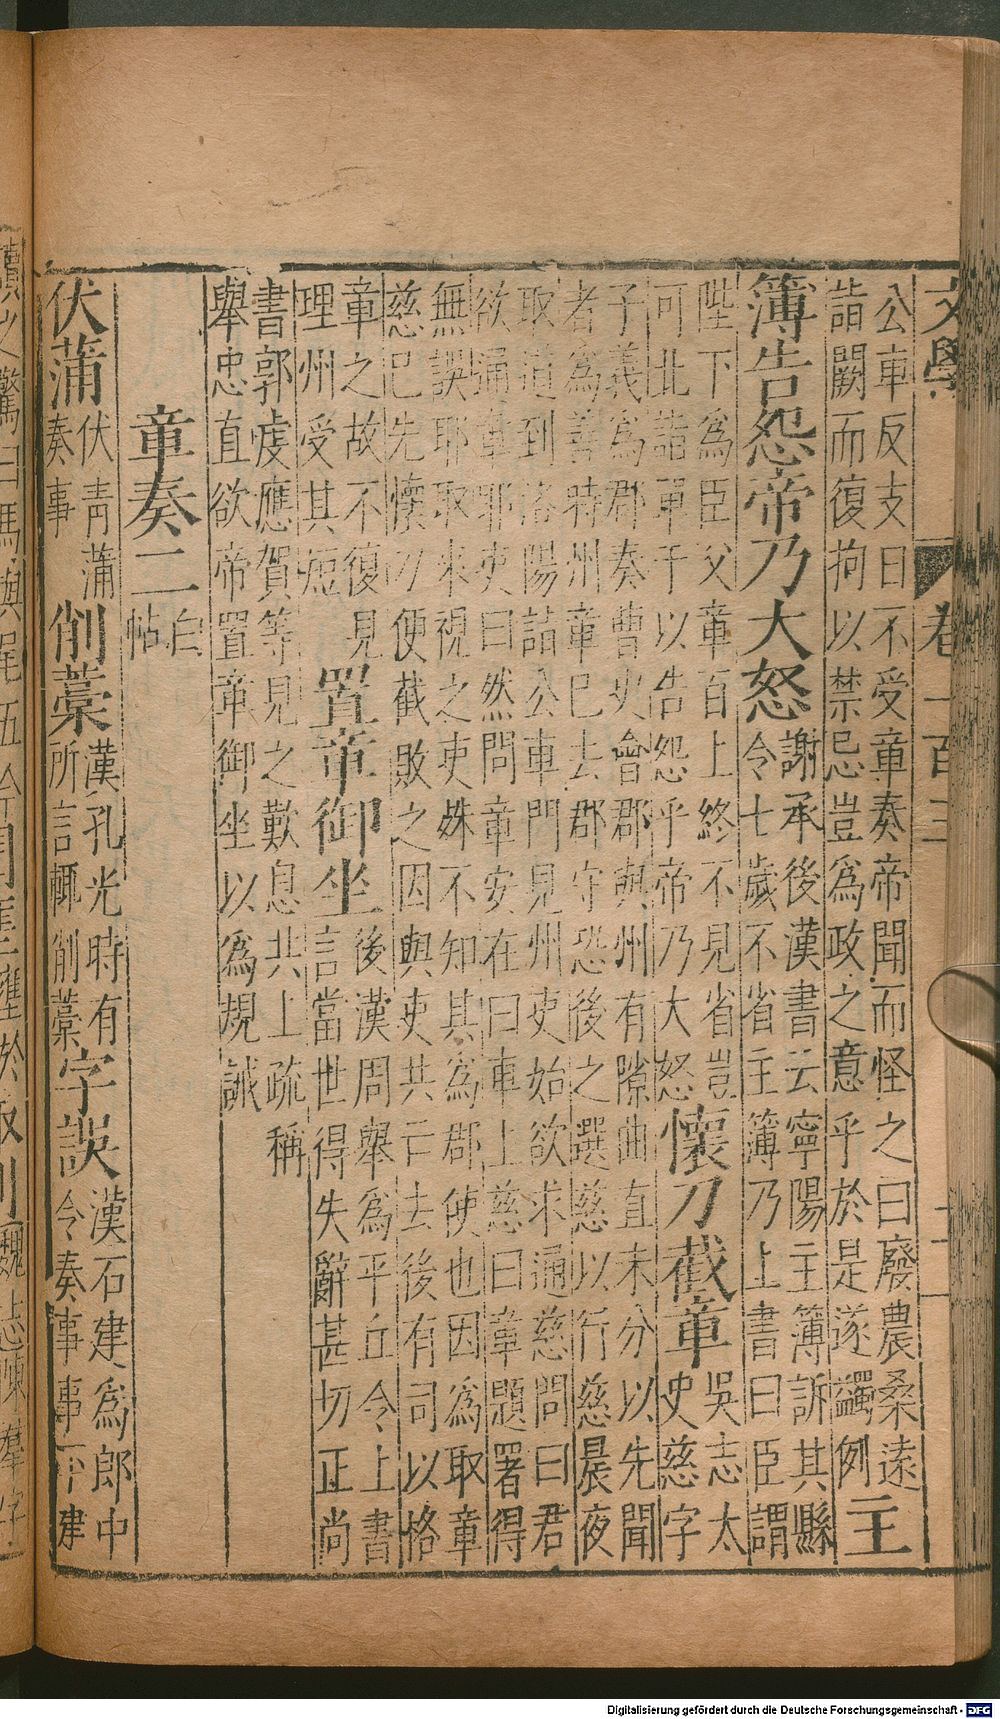 文學 卷一百三 十二
公車反支日不受章奏帝聞而怪之曰廢農桑遠
詣闕而復拘以禁忌豈為政之意乎於是遂蠲例
主
簿告怨帝乃大怒
謝承後漢書云寧陽主簿訴其縣
令七歲不省主簿乃上書曰臣謂
陛下為臣父章百上終不見省豈
可北詣單于以告怨乎帝乃大怒
懷刀截章
吳志太
史慈字
子義為郡奏曹史會郡與州有隙曲直未分以先聞
者為善時州章已去郡守恐後之選慈以行慈晨夜
取道到洛陽詣公車門見州吏始欲求通慈問曰君
欲通章耶吏曰然問章安在曰車上慈曰章題署得
無誤耶取來視之吏姝不知其為郡使也因為取章
慈已先懷刀便截敗之因與吏共亡去後有司以格
章之故不復見
理州受其短
置章御坐
後漢周舉為平丘令上書
言當世得失辭甚切正尚
書郭虔應賀等見之歎息共上疏稱
舉忠直欲帝置章御坐以為規誡
章奏二
白
帖
伏蒲
伏青蒲
奏事
削藁
漢孔光時有
所言輒削藁
字誤
漢石建為郎中
令奏事事下建
讀之驚曰馬與尾五今
魏志陳羣字
Digitalisierung gefördert durch die Deutsche Forschungsgemeinschaft - DFG